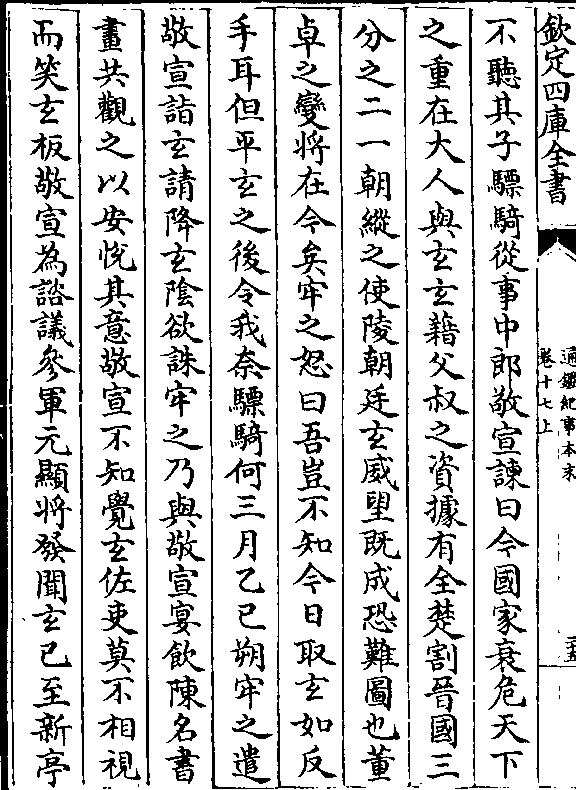 欽定四庫全書
通鑑紀事本末
卷十七上
三五
不聽其子驃騎從事中郎敬宣諫曰今國家衰危天下
之重在大人與玄玄藉父叔之資據有全楚割晉國三
分之二一朝縱之使陵朝廷玄威望既成恐難圖也董
卓之變將在今矣牢之怒曰吾豈不知今日取玄如反
手耳但平玄之後令我奈驃騎何三月乙巳朔牢之遣
敬宣詣玄請降玄陰欲誅牢之乃與敬宣宴飲陳名書
畫共觀之以安悅其意敬宣不知覺玄佐吏莫不相視
而笑玄板敬宣為諮議參軍元顯將發聞玄已至新亭